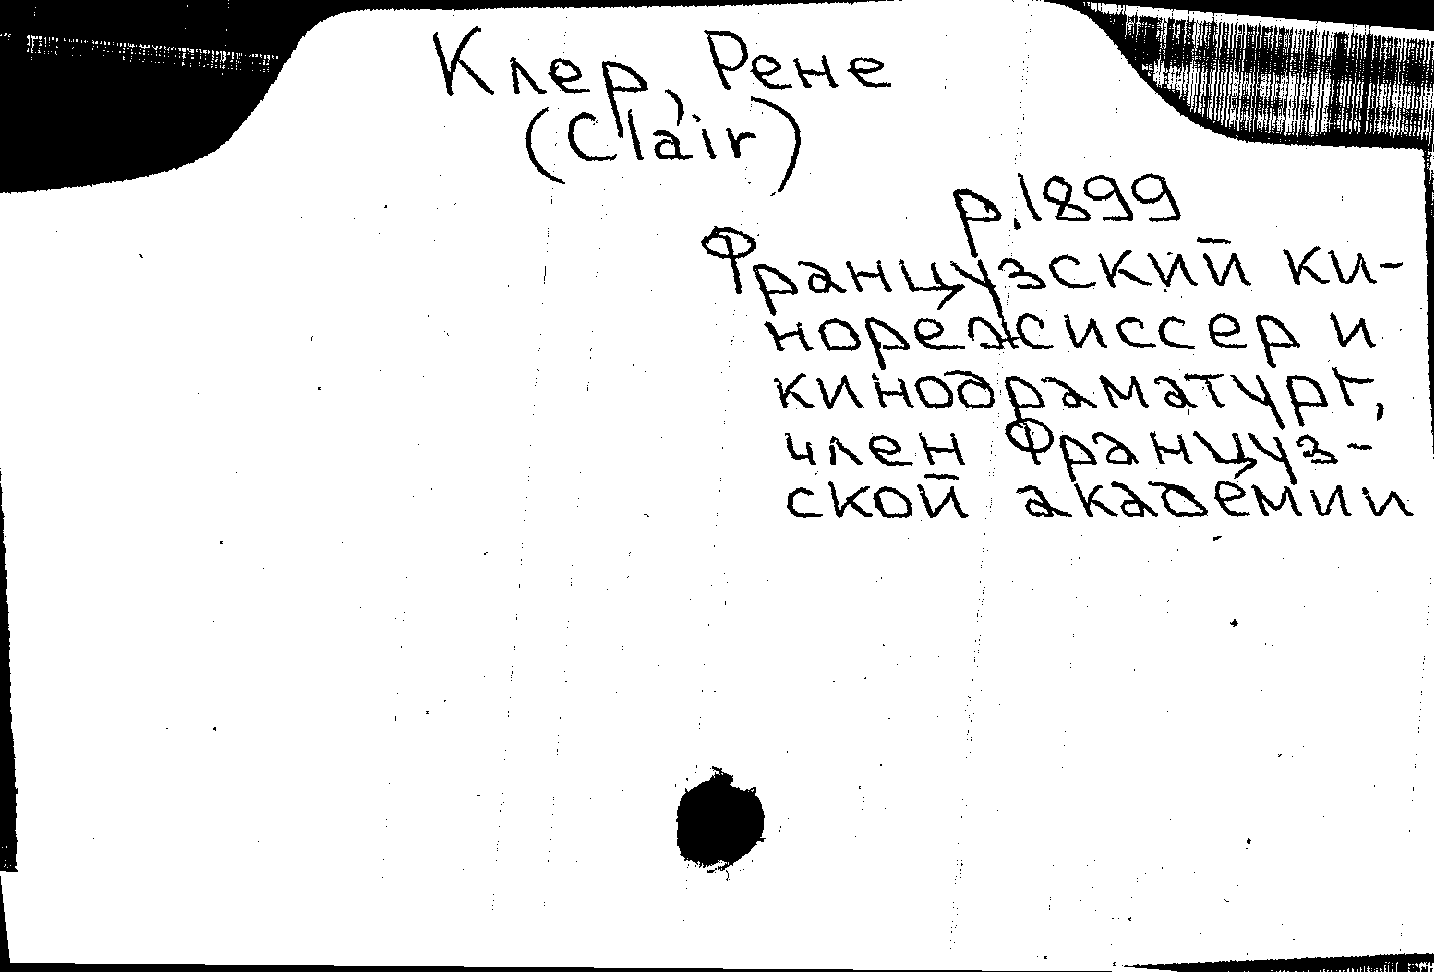 Клер, Рене
(Clair)
р. 1899
Французский ки-
норежиссер и
кинодраматург,
член Француз-
ской академии